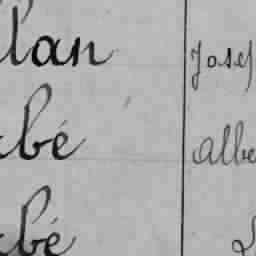 lan Josep
bé Albe
bé